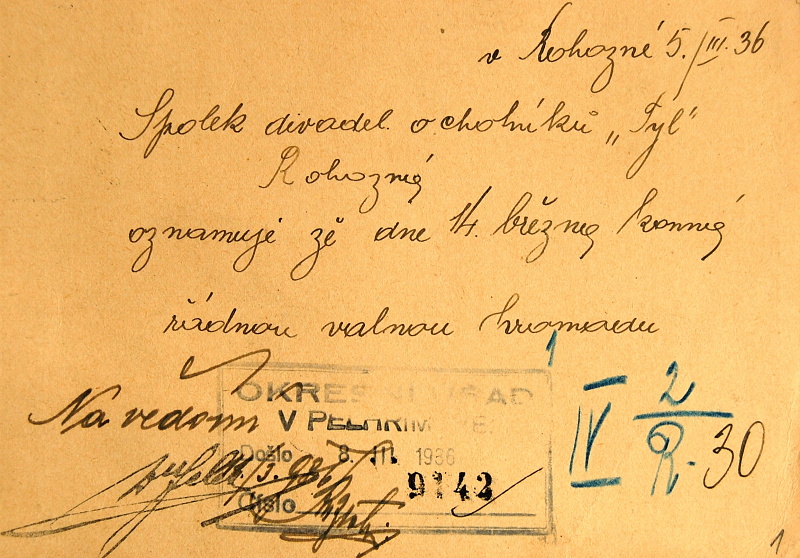 v Rohozné 5./III. 36
Spolek divadel. ochotníků „Tyl“
Rohozná
oznamuje žě dne 14. března konná
řádnou valnou hromadu
1
Na vědomí
OKRESNÍ ÚŘAD
V PELHŘIMOVĚ
Došlo 8. III. 1936
Číslo 9142
IV 2
R. 30
1